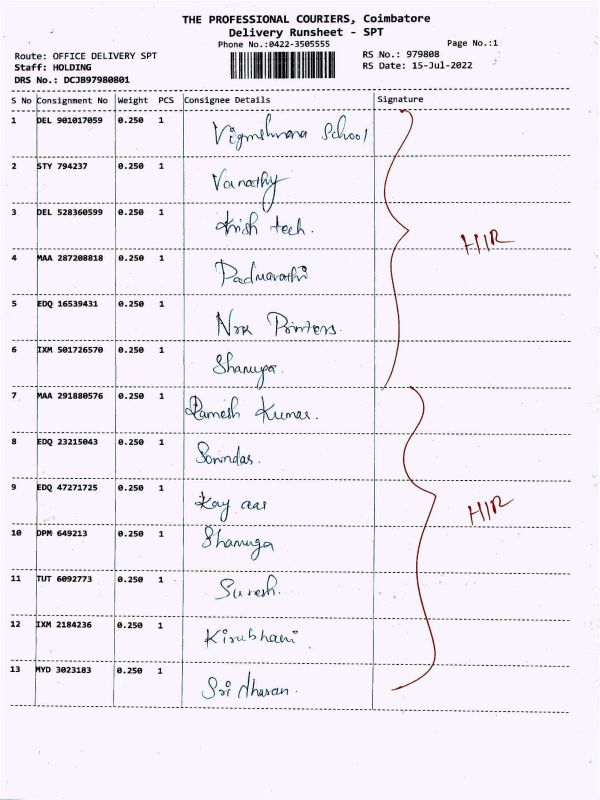 THE PROFESSIONAL COURIERS, Coimbatore
Delivery Runsheet - SPT
Phone No.:0422-3505555
Page No.:1
Route: OFFICE DELIVERY SPT
RS No.: 979808
Staff: HOLDING
RS Date: 15-Jul-2022
DRS No.: DCJB97980801
S No Consignment No Weight PCS Consignee Details Signature
1 DEL 901017059 0.250 1 Vigneshwara School
2 STY 794237 0.250 1 Vanathy
3 DEL 528360599 0.250 1 Krish tech.
4 MAA 287208818 0.250 1 Padmavathi
5 EDQ 16539431 0.250 1 Printers.
6 IXM 501726570 0.250 1 Shamuga.
7 MAA 291880576 0.250 1 Ramesh Kumar.
8 EDQ 23215043 0.250 1
9 EDQ 47271725 0.250 1 Kay aar
10 DPM 649213 0.250 1 Shamuga
11 TUT 6092773 0.250 1 Suresh.
12 IXM 2184236 0.250 1 Kirubhani
13 MYD 3023183 0.250 1 Sri dharan.
H/R
H/R